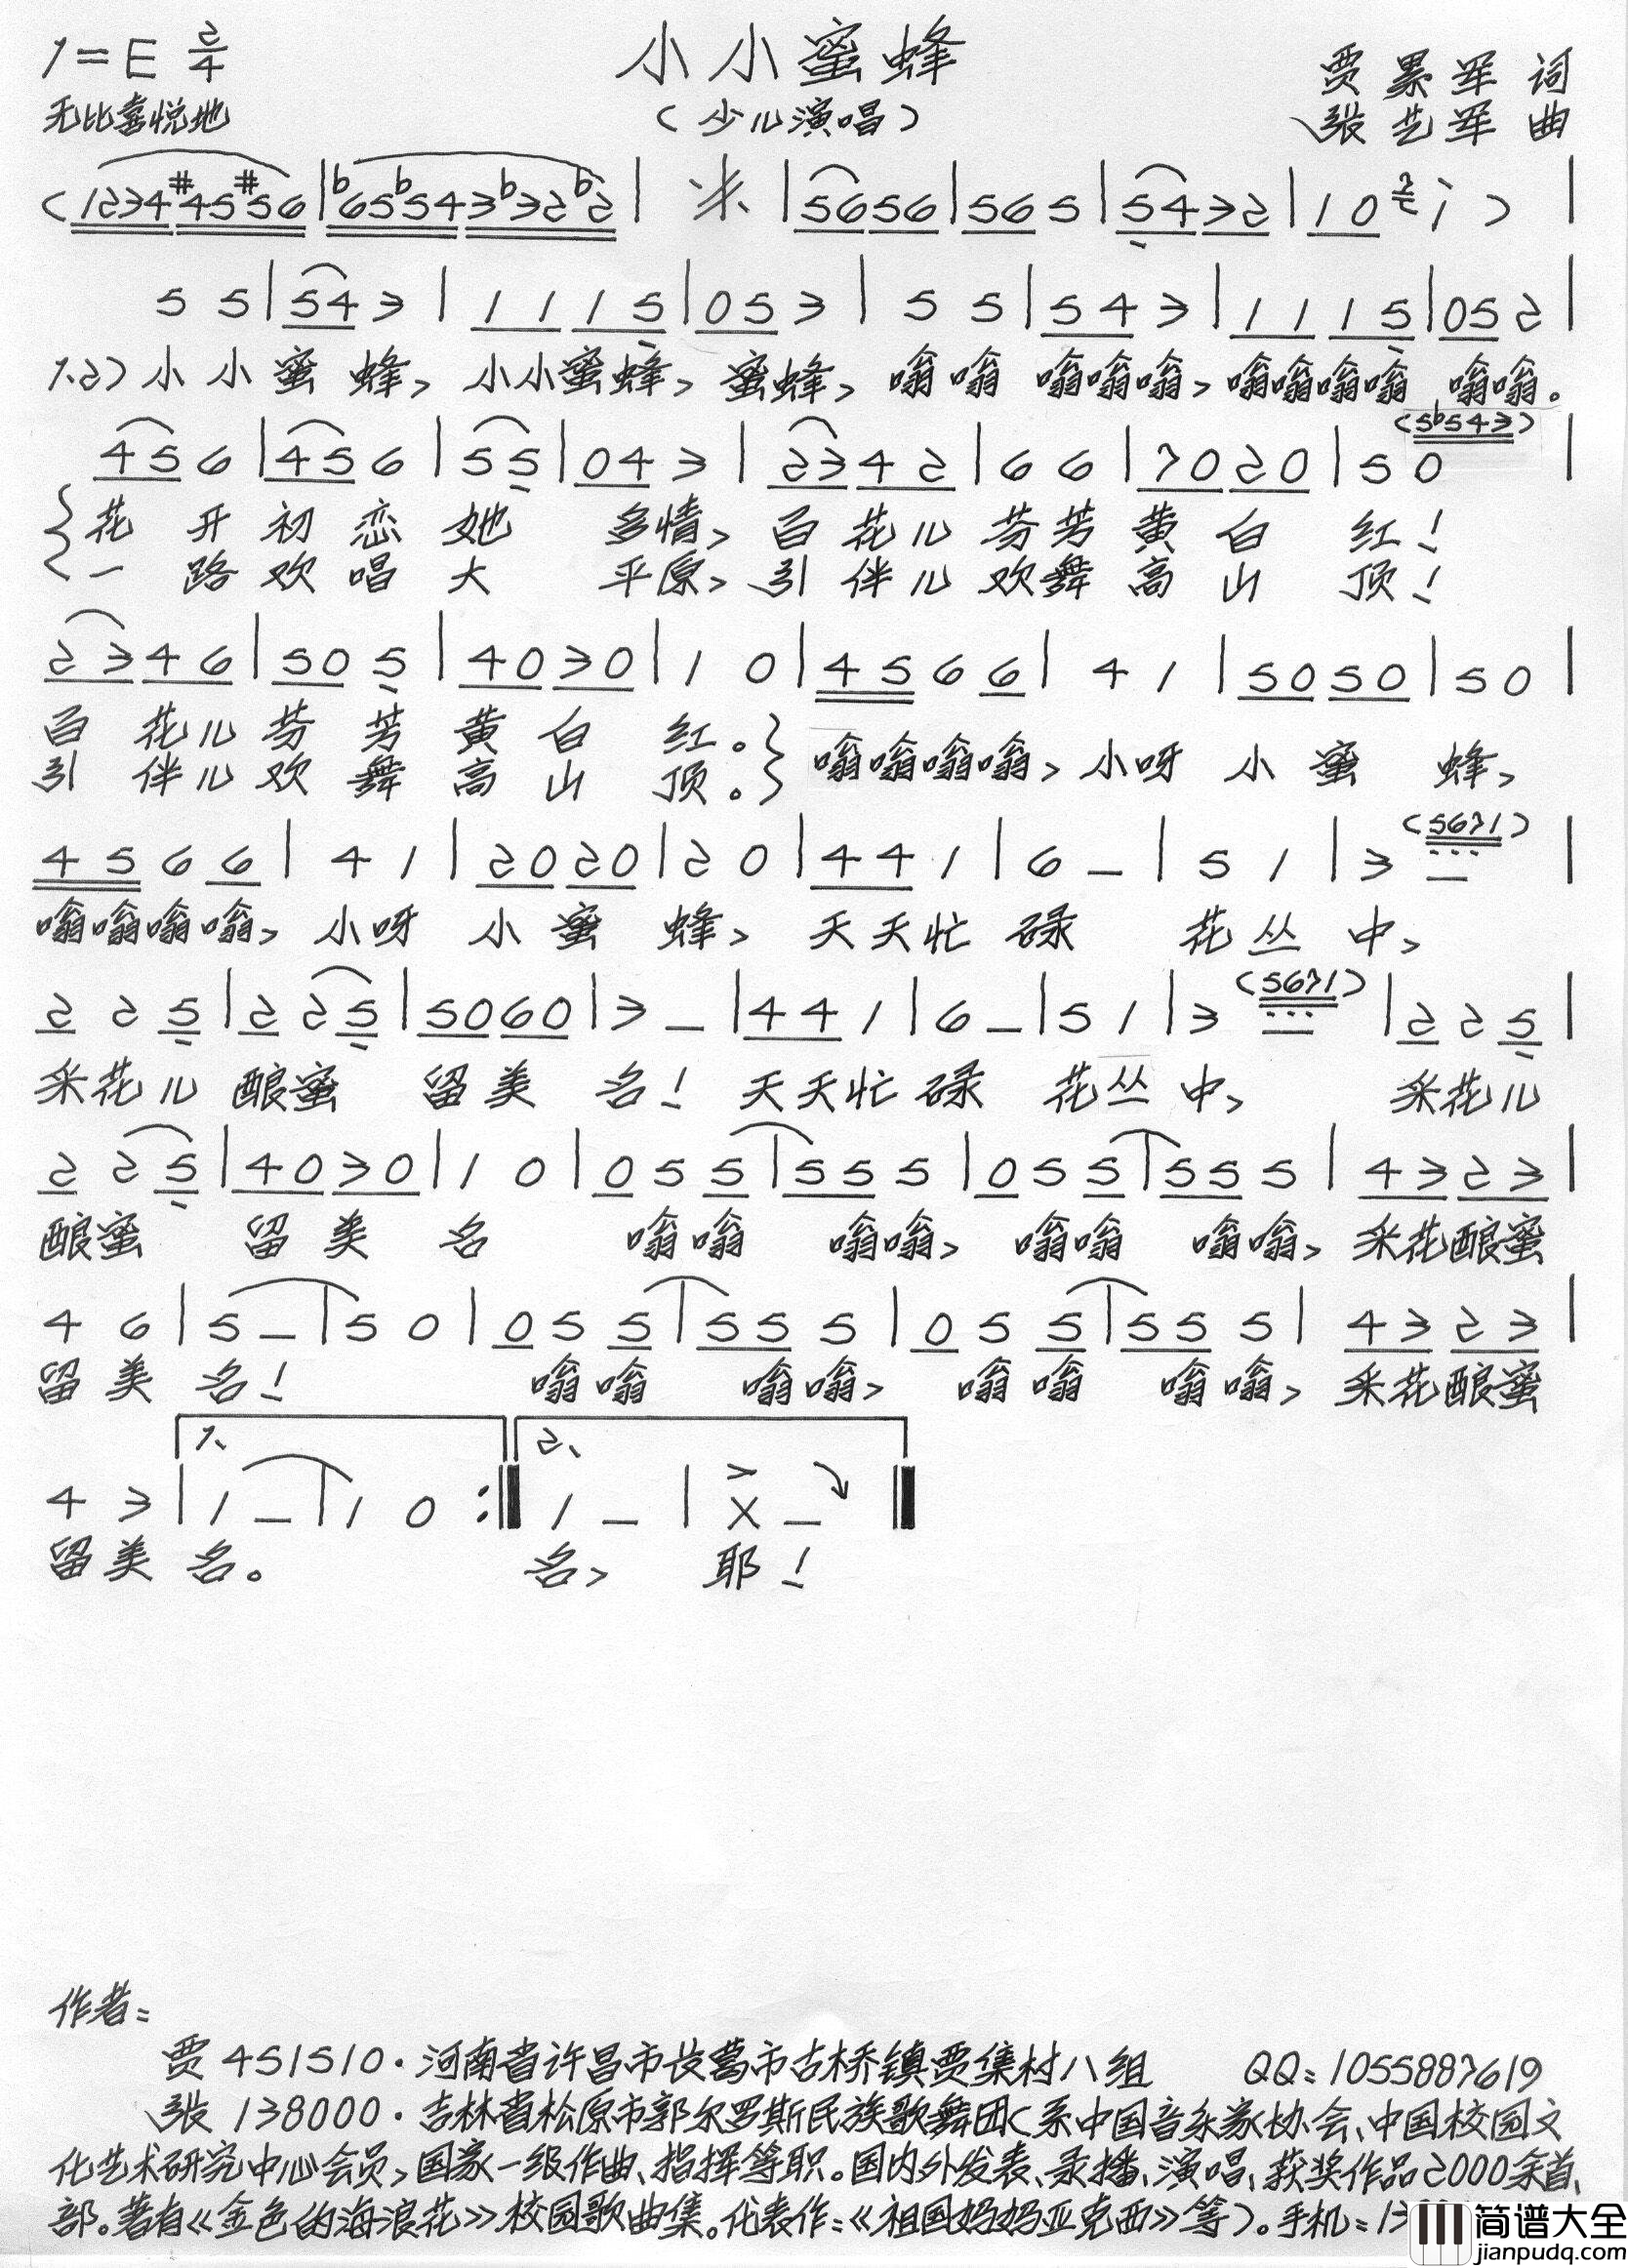 小小蜜蜂
1=E 2/4
(少儿演唱)
贾累军 词
无比喜悦地
张艺军 曲
(1234#45#56|b65b543b32b2| 米 |5656|565|5432|10 i)|
55|543|1115|053|55|543|1115|052|
1.2)小小蜜蜂,小小蜜蜂,蜜蜂,嗡嗡 嗡嗡嗡,嗡嗡嗡嗡 嗡嗡。
(5b543)
456|456|55|043|2342|66|7020|50|
花开初恋她 多情,百花儿芬芳黄白红!
一路欢唱大 平原,引伴儿欢舞高山顶!
2346|505|4030|10|4566|41|5050|50|
百花儿芬芳黄白红。
引伴儿欢舞高山顶。
嗡嗡嗡嗡,小呀小蜜蜂,
(5671)
4566|41|2020|20|441|6-|51|3-|
嗡嗡嗡嗡,小呀小蜜蜂,天天忙碌 花丛中,
(5671)
225|225|5060|3-|441|6-|51|3-|225|
采花儿 酿蜜 留美名!天天忙碌 花丛中, 采花儿
225|4030|10|055|555|055|555|4323|
酿蜜 留美名 嗡嗡 嗡嗡,嗡嗡 嗡嗡,采花酿蜜
46|5-|50|055|555|055|555|4323|
留美名! 嗡嗡 嗡嗡,嗡嗡 嗡嗡,采花酿蜜
1、 2、
43|1-|10:‖1-|X-‖
留美名。 名,耶!
作者:
贾 451510·河南省许昌市长葛市古桥镇贾集村八组 QQ:1055887619
张 138000·吉林省松原市郭尔罗斯民族歌舞团(系中国音乐家协会、中国校园文
化艺术研究中心会员,国家一级作曲、指挥等职。国内外发表、录播、演唱、获奖作品2000余首、
部。著有《金色的海浪花》校园歌曲集。代表作:《祖国妈妈亚克西》等)。手机:13
简谱大全
jianpudq.com